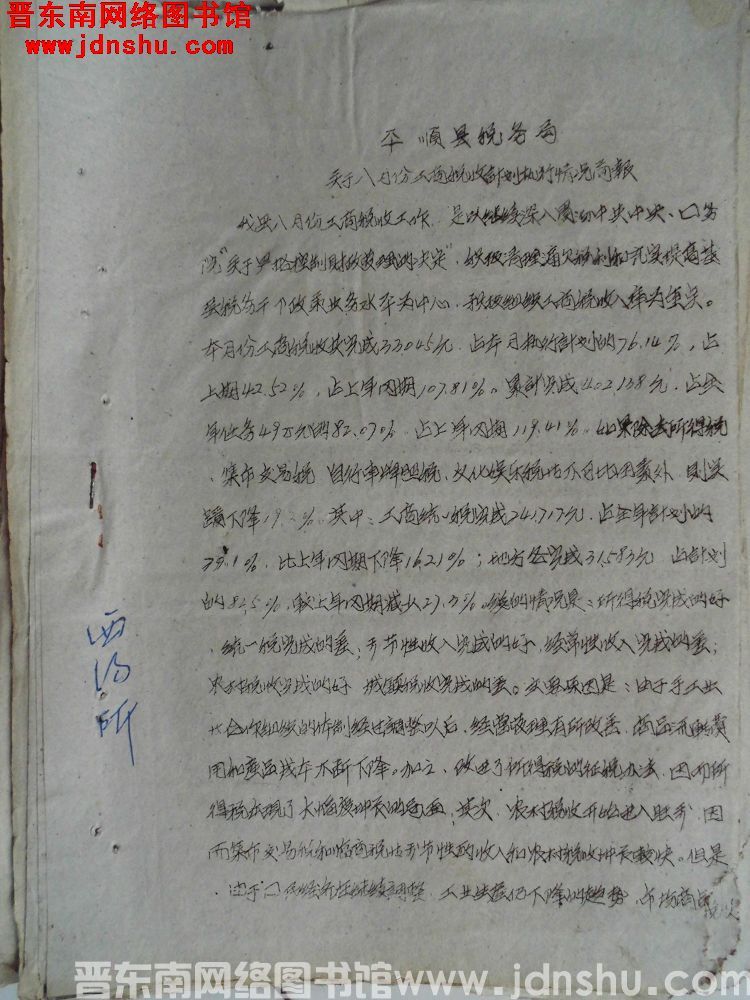 晋东南网络图书馆
www.jdnshu.com
平顺县税务局
关于八月份工商税收计划执行情况简报
我县八月份工商税收工作,是以继续深入贯彻中共中央、口务
院"关于严格控制财政管理的决定",积极清理滞欠税利和充实提高基
层税务干部政策业务水平为中心,积极组织工商税收入库为重点。
本月份工商税收共完成33045元,占本月执行计划的76.14%,占
上期42.52%,占上年同期107.81%。累计完成402,138元,占全
年任务49万元的82.07%,占上年同期119.41%。如果除去所得税
、集市交易税、自行车牌照税、文化娱乐税等不可比因素外,则实
际下降19. %。其中:工商统一税完成241,717元,占全年计划的
79.1%,比上年同期下降16.21%;地方各税完成31,583元,占计划
的82.5%,较上年同期减少27.3%。总的情况是:所得税完成的好
、统一税完成的差;季节性收入完成的好,经常性收入完成的差;
农村税收完成的好,城镇税收完成的差。主要原因是:由于手工业
合作组织的体制经过调整以后,经营管理有所改善,商品流转费
用和产品成本不断下降。加之,改进了所得税的征税办法,因而所
得税出现了大幅度增长的局面;其次,农村税收开始进入旺季,因
而集市交易税和临商税等季节性的收入和农村税收增长较快。但是
,由于口民经济在继续调整,工业生产仍下降的趋势,市场商品
西沟所
晋东南网络图书馆www.jdnshu.com